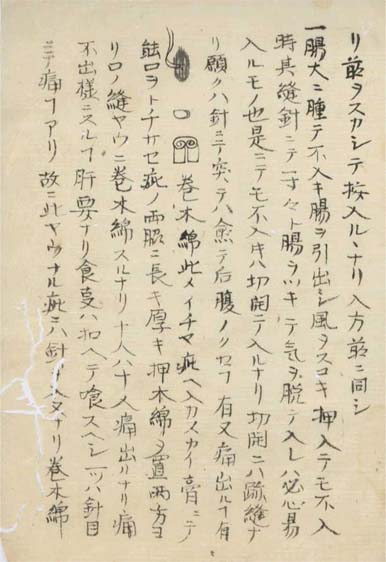 リ前ヲスカシテ按入ルヿナリ入方前ニ同シ
一腸大ニ腫テ不入キ腸ヲ引出シ風ヲスコキ押入テモ不入
時其縫針ニテ一寸々ト腸ヲツキテ気ヲ脱テ入レハ必心易
入ルモノ也是ニテモ不入キハ切開テ入ルナリ切開ニハ跡縫ナ
リ願クハ針ニテ突テハ愈テ后腹ノクセフ有又痛出ルヿ有
巻木綿此メイチヤ疵ヘ入カスカイ膏ニテ
能口ヲトチサセ疵ノ両脇ニ長キ厚キ押木綿ヲ置両方ヨ
リ口ノ縫ヤウニ巻木綿スルナリ十人ハ十人痛出ルナリ痛
不出様ニスルヿ肝要ナリ食叓ハ扣ヘテ喰スヘシ一ツハ針目
ニテ痛ヿアリ故ニ此ヤウナル疵ニハ針ヲ入ヌナリ巻木綿